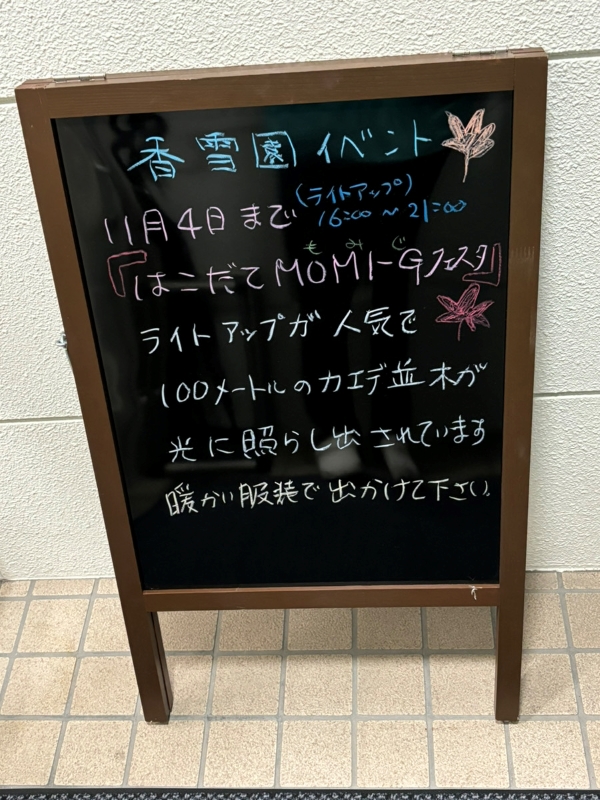 香雪園イベント
(ライトアップ)
11月4日まで 16:00～21:00
もみじ
『はこだてMOMI-Gフェスタ』
ライトアップが人気で
100メートルのカエデ並木が
光に照らし出されています
暖かい服装で出かけて下さい